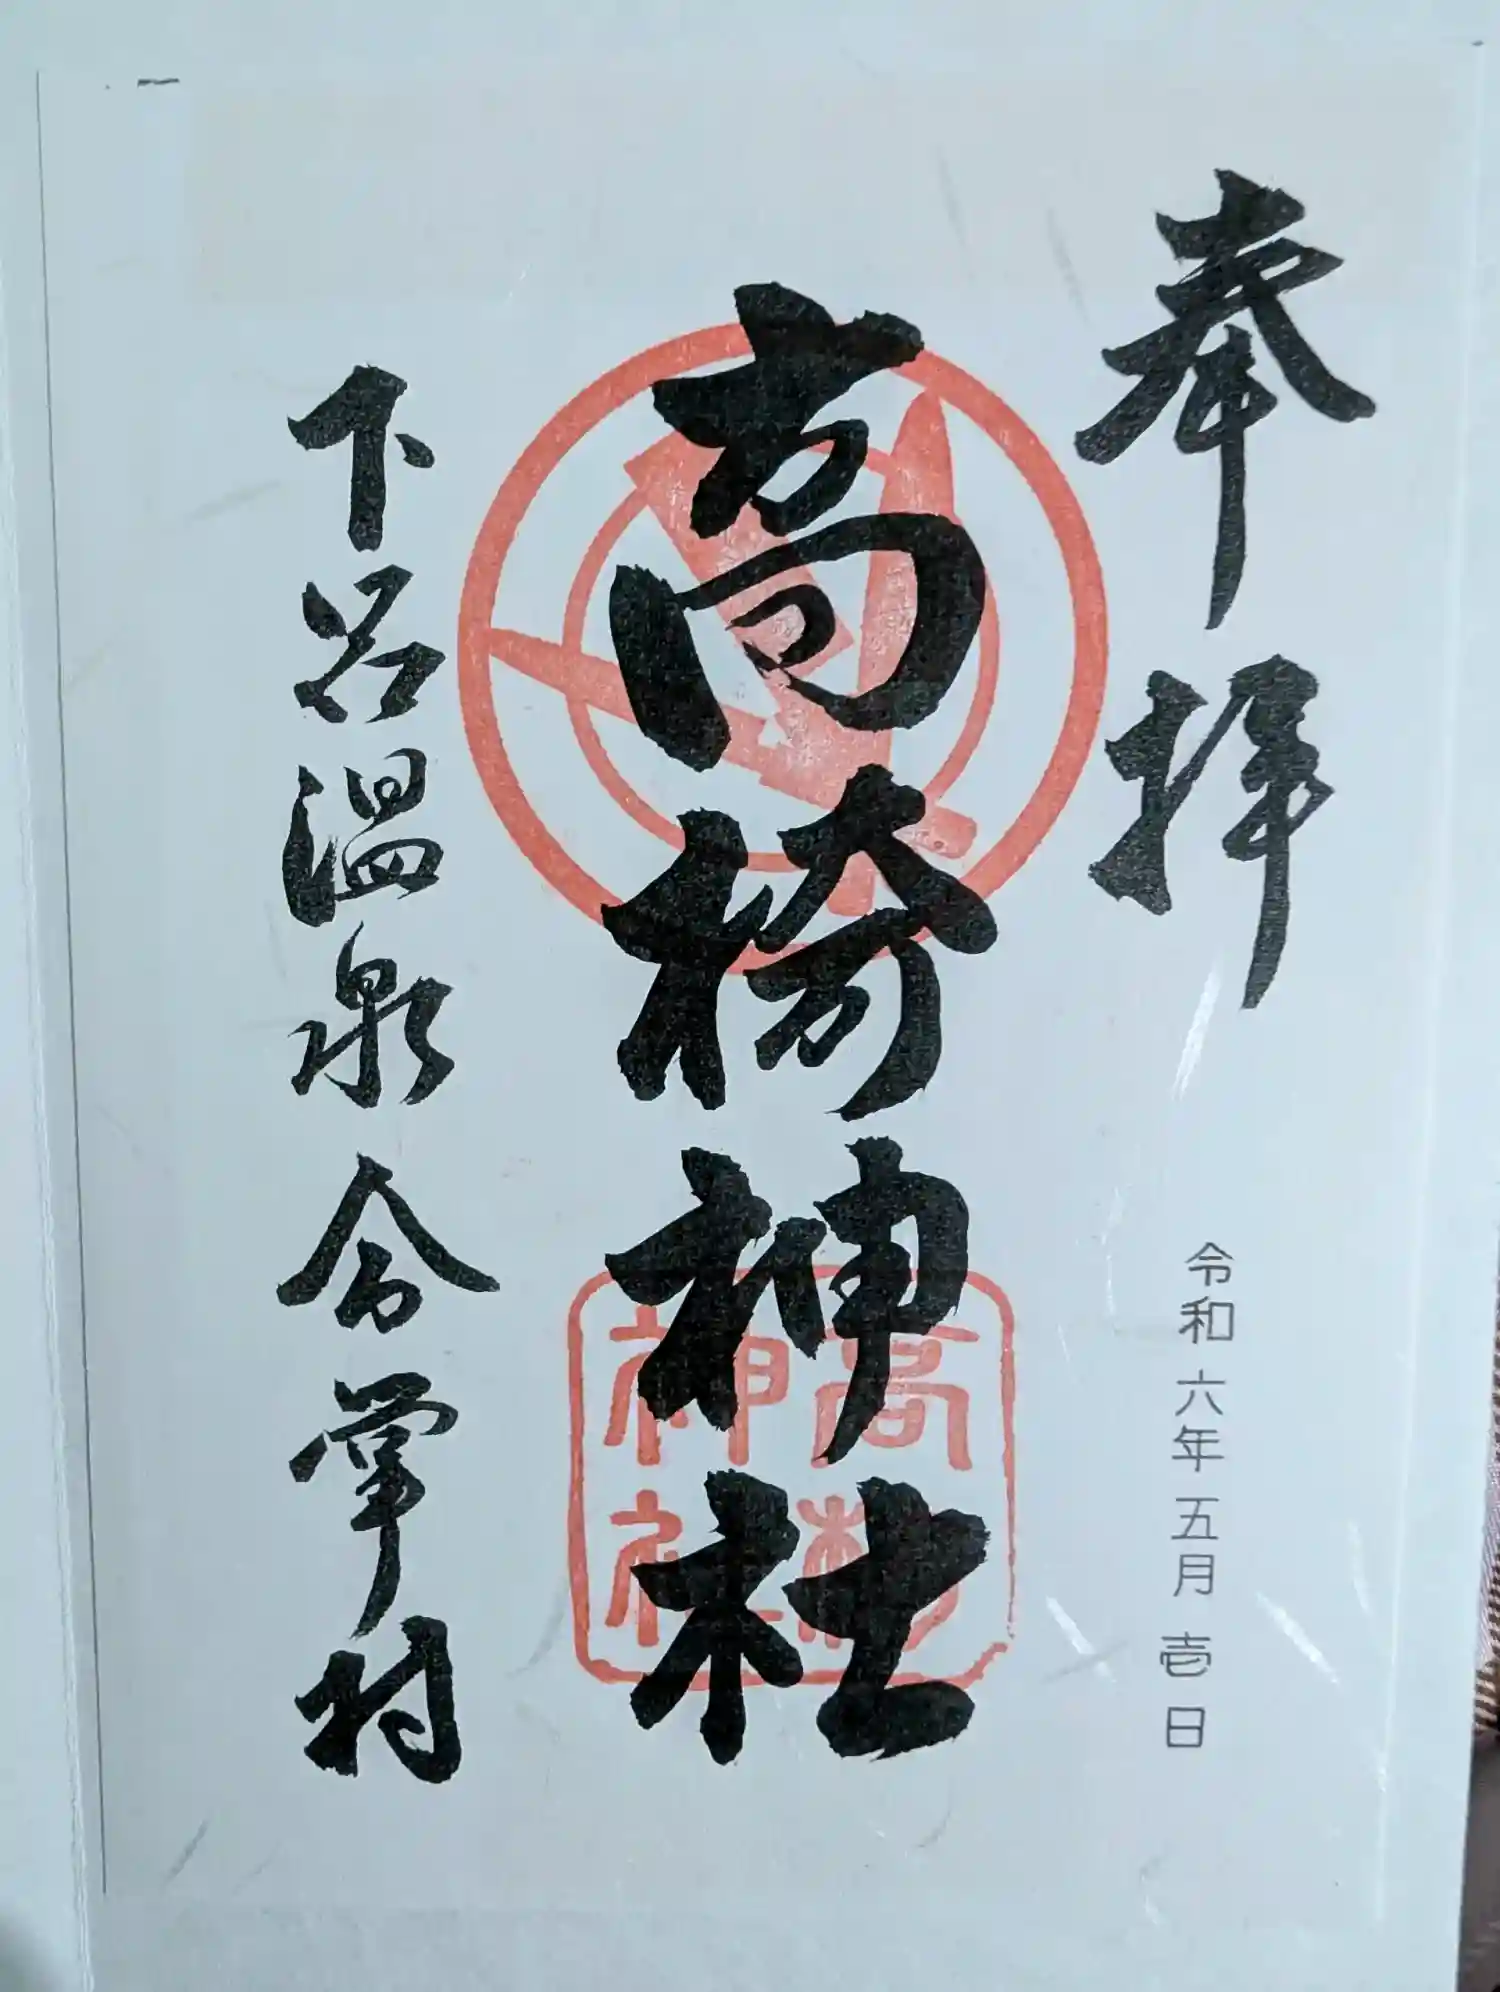 奉拝
令和六年五月壱日
高椅神社
下呂温泉合掌村